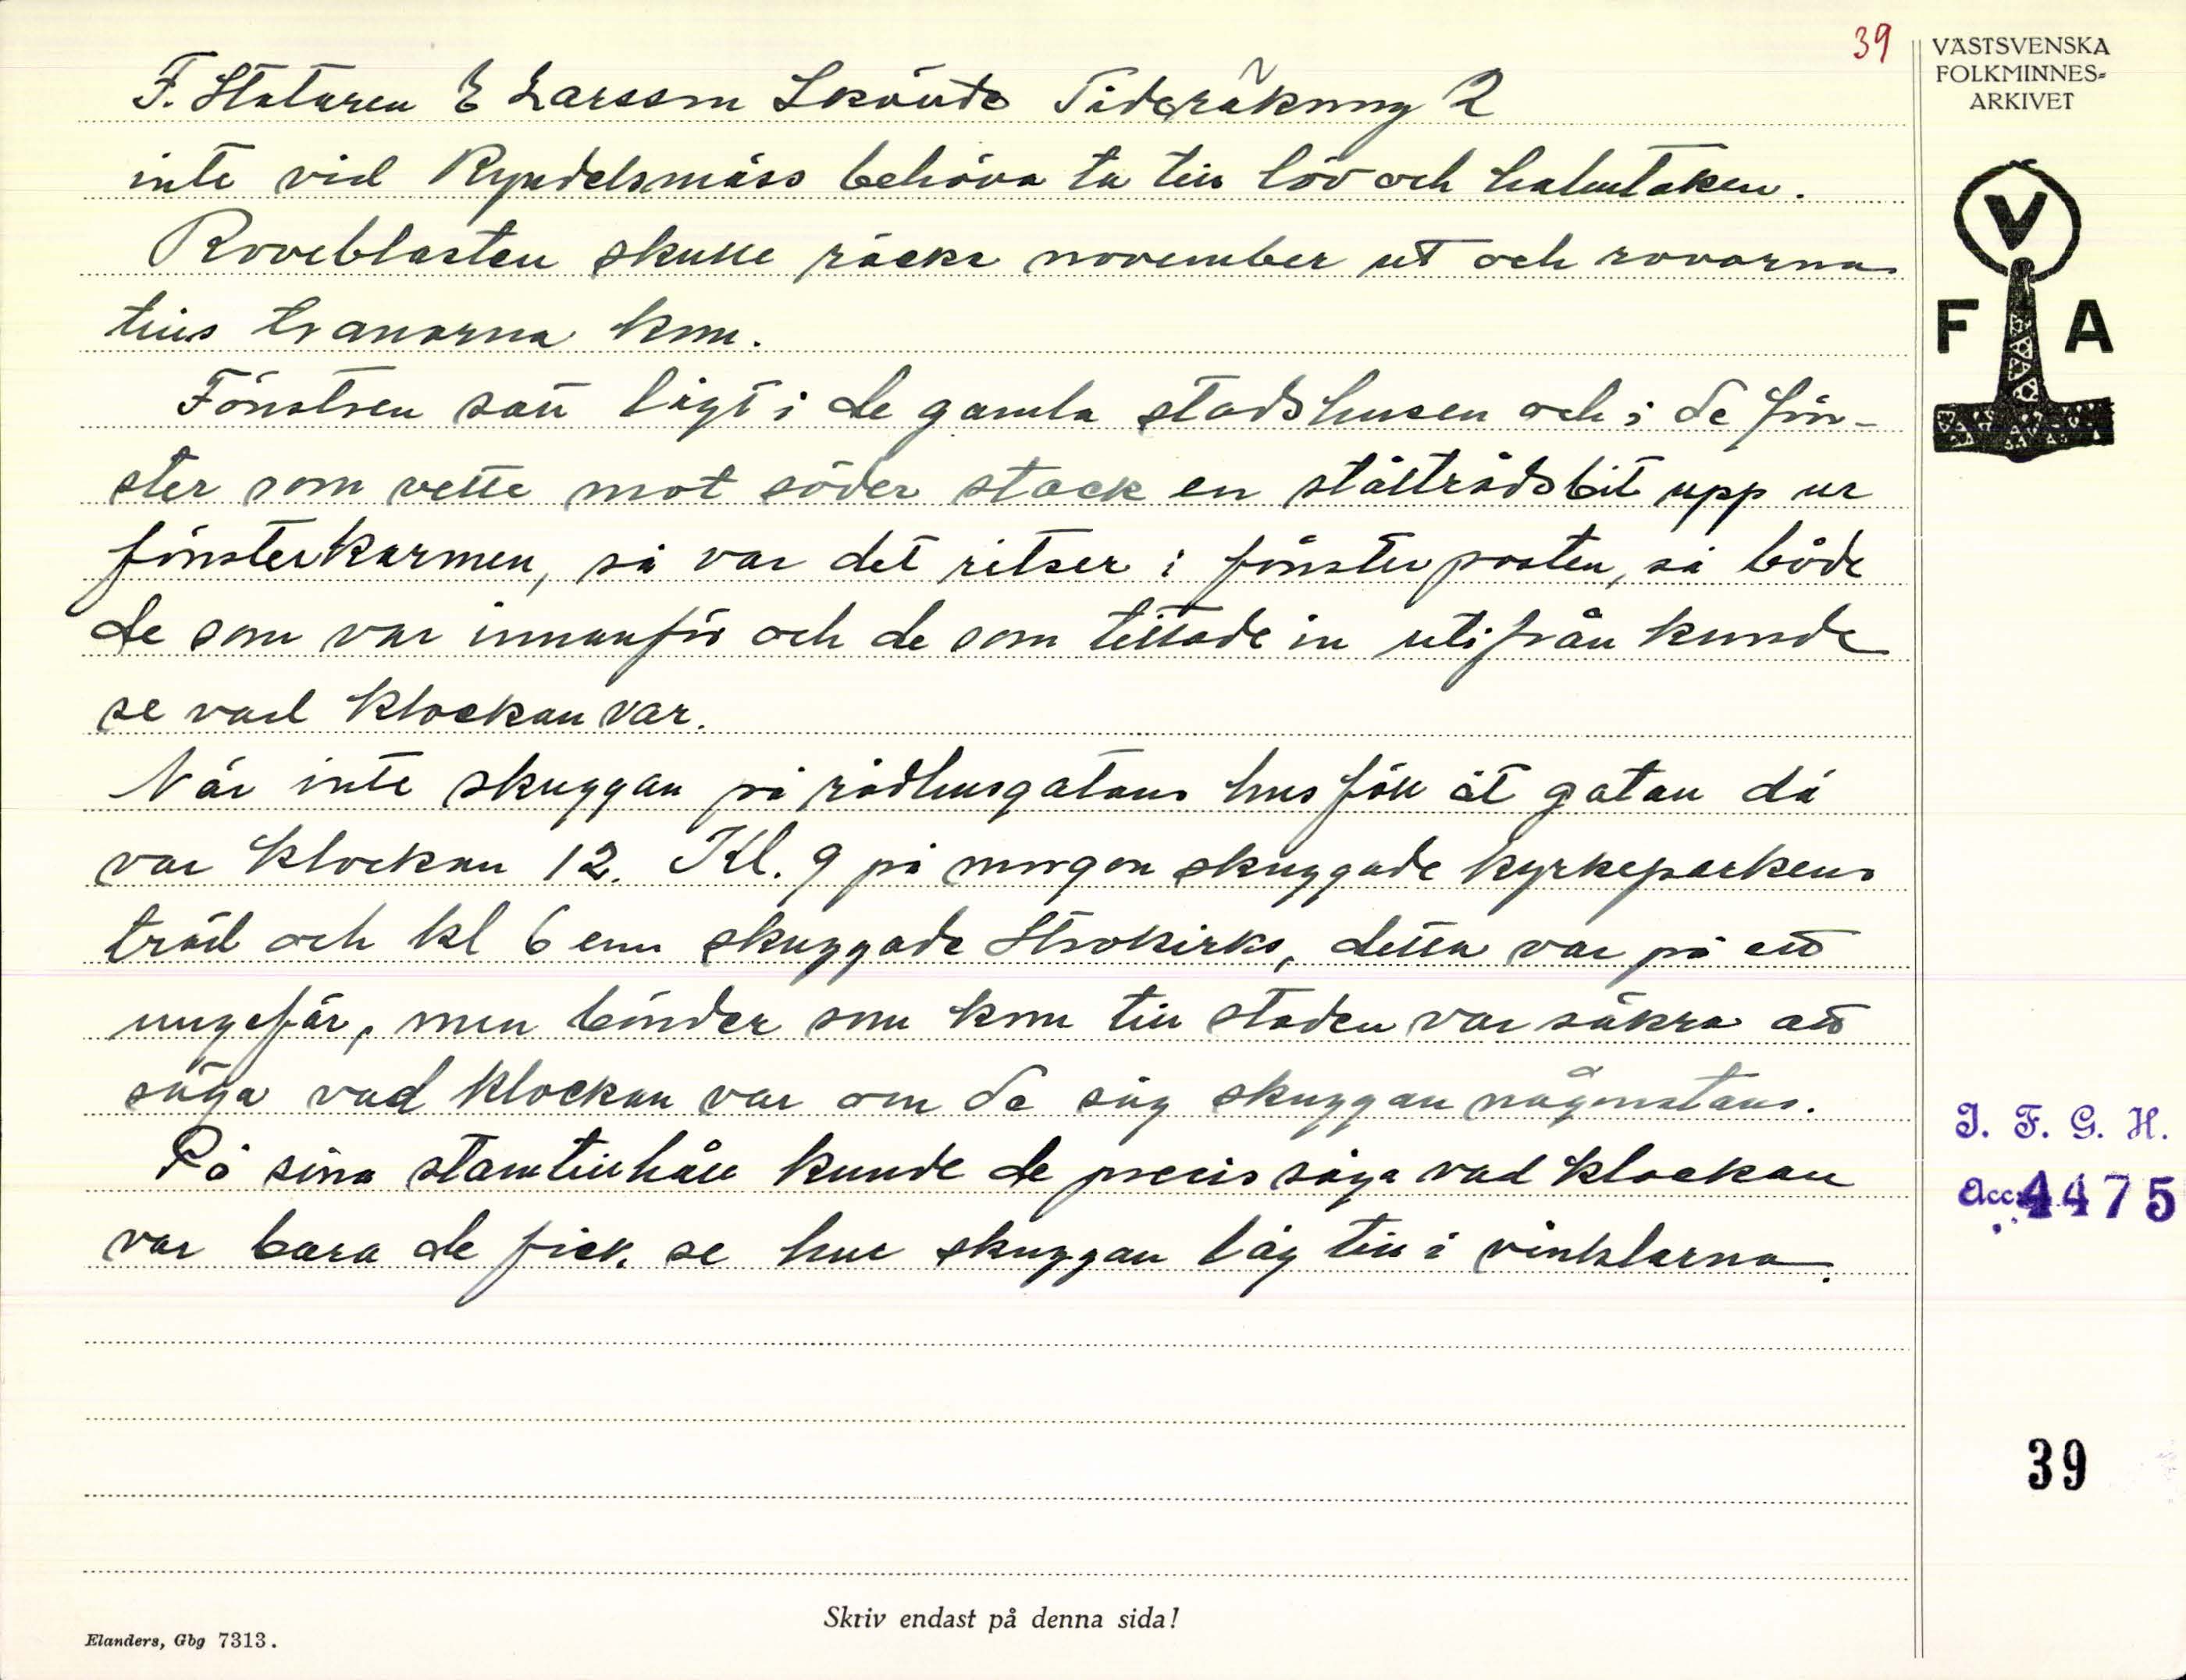 39
VÄSTSVENSKA
FOLKMINNES-
ARKIVET
F. Staturen E Larsson Skövde Tideräkning 2
inte vid Kyndelsmäss behöva ta till löv och halmtaken.
Roveblasten skulle räcka november ut och rovorna
tills tranorna kom.
Fönstren satt lågt i de gamla stadshusen och i de fön-
ster som vette mot söder stack en ståltrådsbit upp ur
fönsterkarmen, så var det ritser i fönsterposten, så både
de som var innanför och de som tittade in utifrån kunde
se vad klockan var.
När inte skuggan på rådhusgatans hus föll åt gatan då
var klockan 12. Kl. 9 på morgon skuggade kyrkeparkens
träd och kl 6 em skuggade Strokirks, detta var på ett
ungefär, men bönder som kom till staden var säkra att
säga vad klockan var om de såg skuggan någonstans.
På sina stamtillhåll kunde de precis säga vad klockan
var bara de fick se hur skuggan låg till i vinklarna.
V
F A
I. F. G. H.
Acc: 4475
39
Skriv endast på denna sida!
Elanders, Gbg 7313.